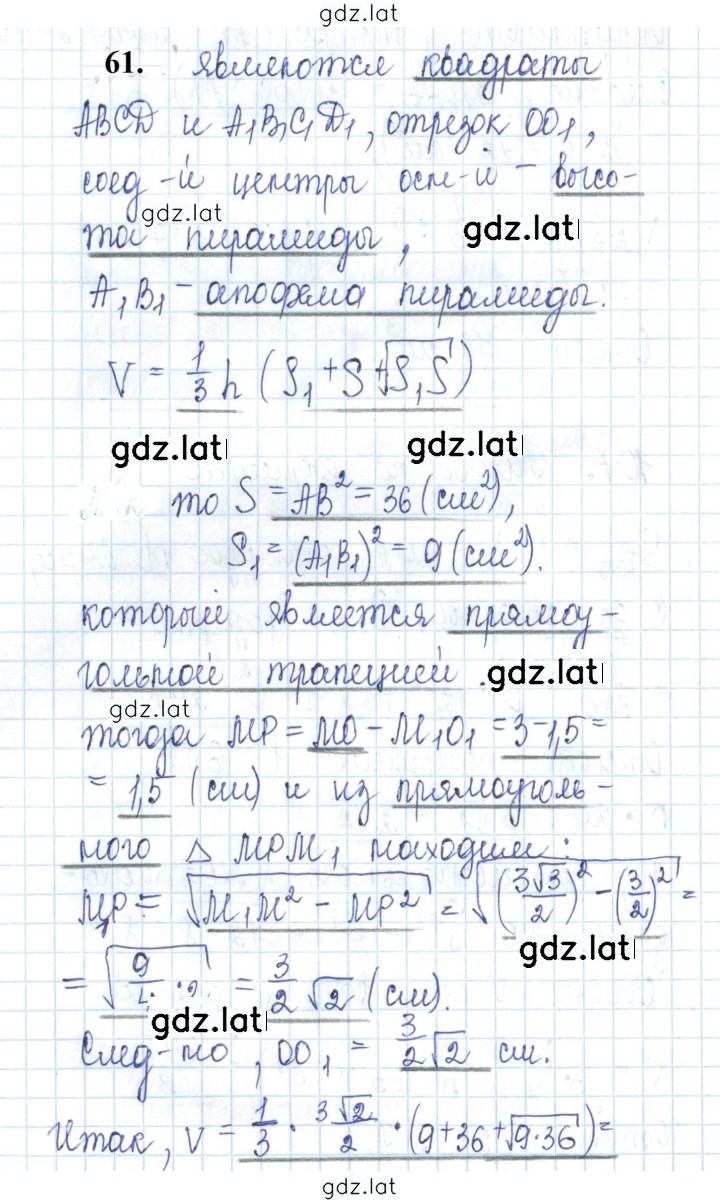 gdz.lat
61. являются квадраты
ABCD и A₁B₁C₁D₁, отрезок OO₁,
соед-й центры осн-й – высо-
gdz.lat
та пирамиды,
gdz.lat
A₁B₁ – апофема пирамиды.
V = 1/3 h (S₁ + S + √S₁S)
gdz.lat
gdz.lat
то S = AB² = 36 (см²),
S₁ = (A₁B₁)² = 9 (см²).
который является прямоу-
гольной трапецией.
gdz.lat
gdz.lat
тогда MP = MO – M₁O₁ = 3 – 1,5 =
= 1,5 (см) и из прямоуголь-
ного △ MPM₁ находим:
M₁P = √(M₁M² – MP²) = √((3√3/2)² – (3/2)²) =
gdz.lat
= √(9/4 · 2) = 3/2 √2 (см).
gdz.lat
След-но, OO₁ = 3/2 √2 см.
Итак, V = 1/3 · 3√2/2 · (9 + 36 + √9·36) =
gdz.lat